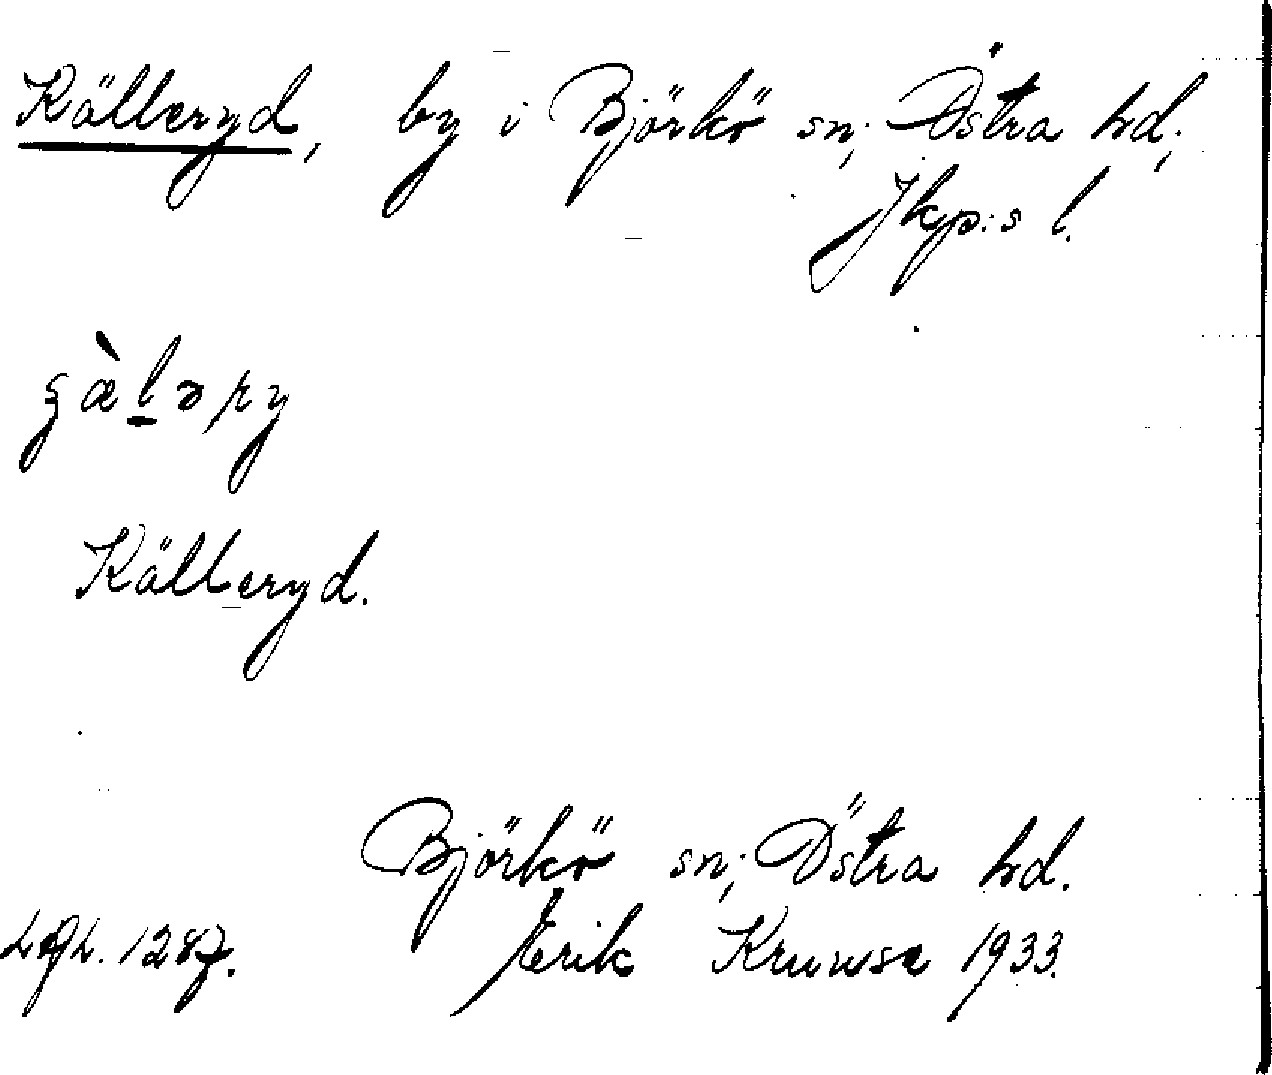 Källeryd, by i Björkö sn; Östra hd;
Jkp:s l.
Källeryd.
Björkö sn; Östra hd.
Erik Kruuse 1933.